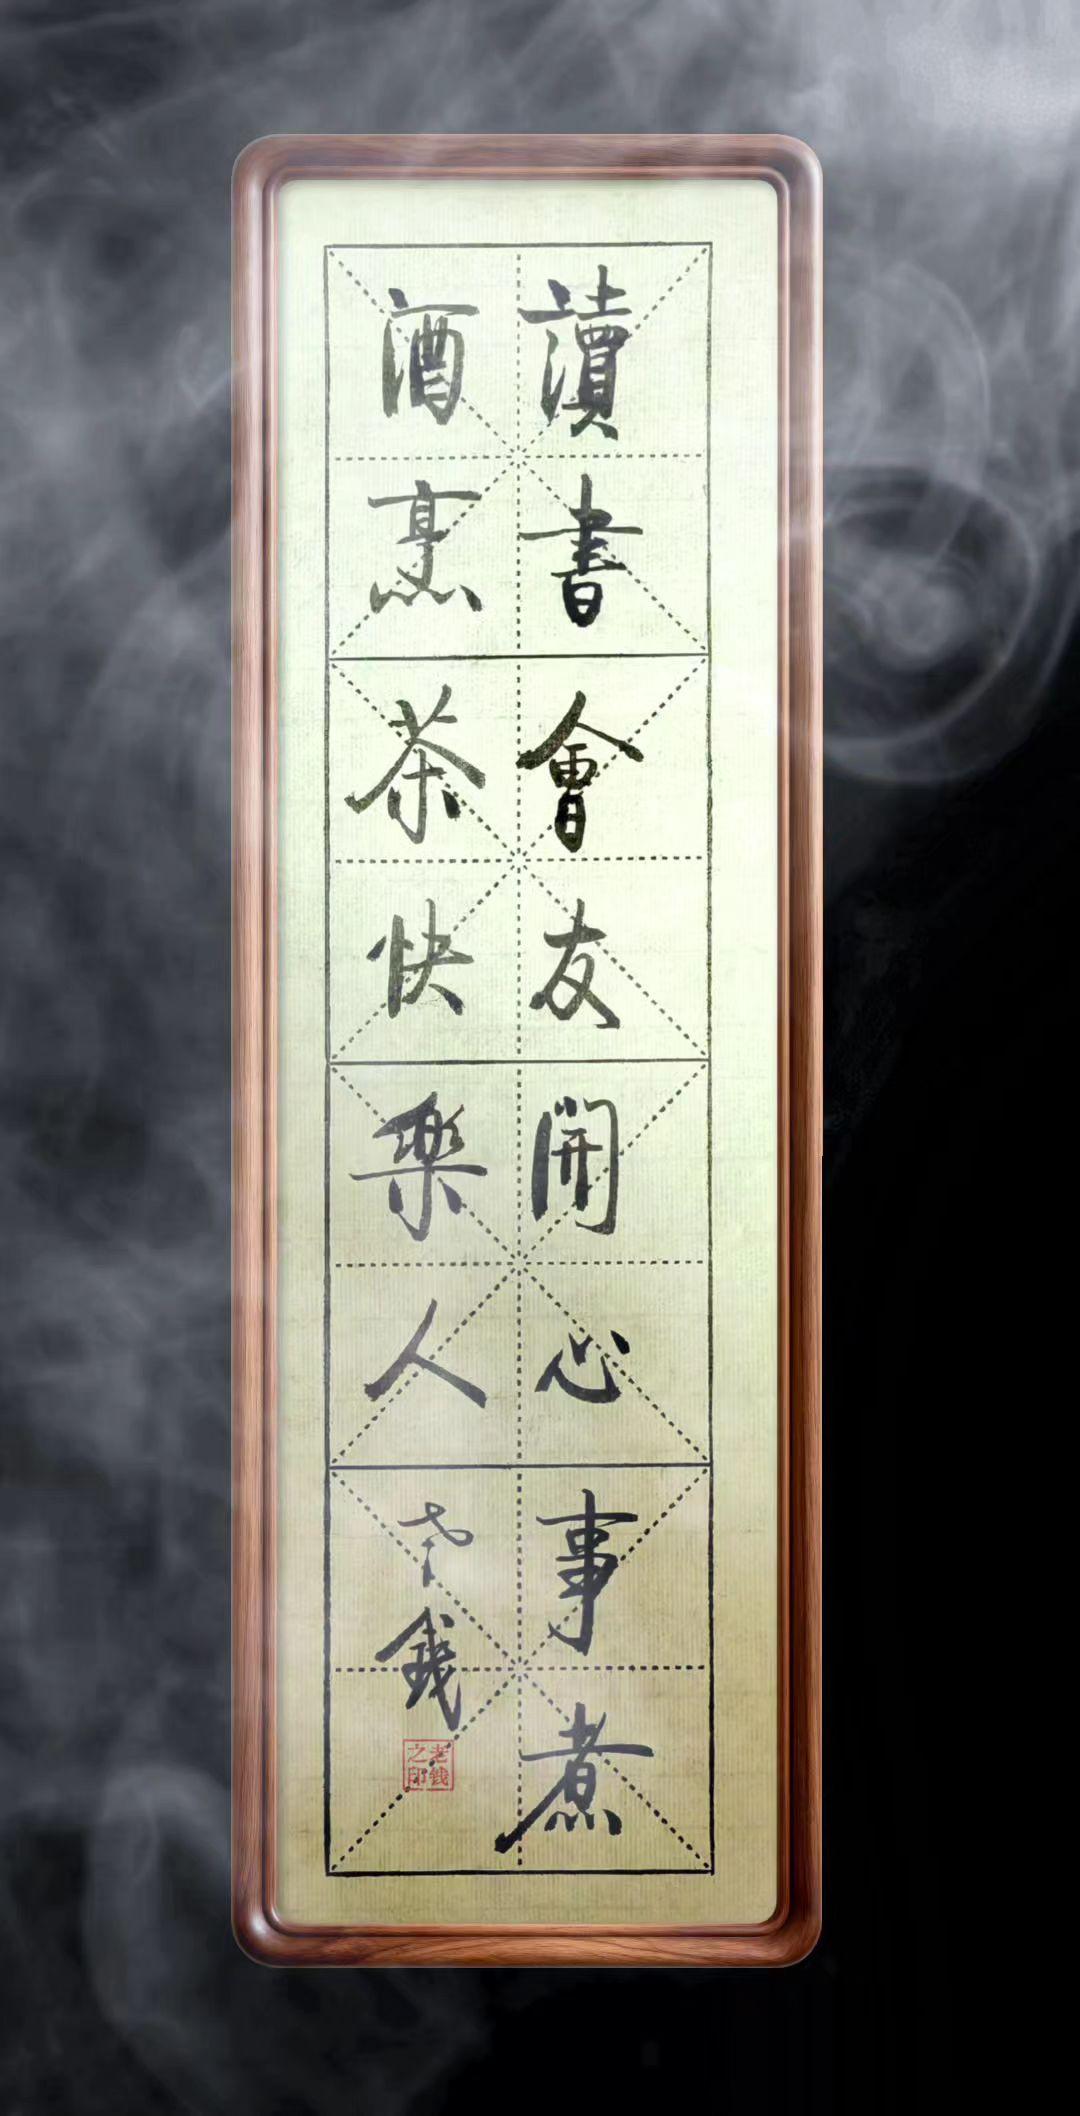 讀書會友開心事煮
酒烹茶快樂人
老錢
老钱之印